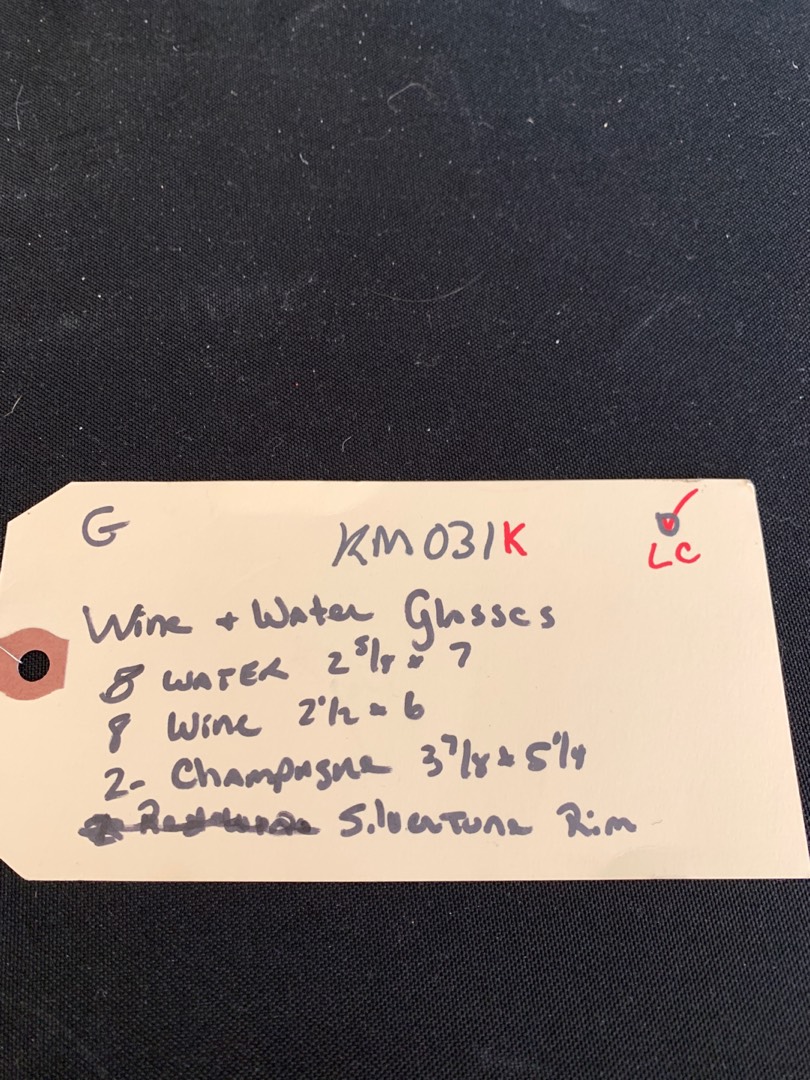 G KM031K
LC
Wine + Water Glasses
8 WATER 2 5/8 x 7
8 Wine 2 1/2 x 6
2- Champagne 3 7/8 x 5 1/4
Silvertone Rim